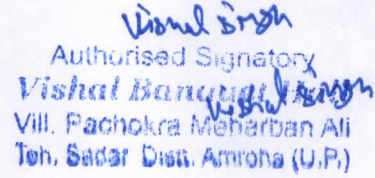 Vishal Singh
Authorised Signatory
Vishal Banquet
Vishal Singh
Vill. Pachokra Meharban Ali
Teh. Sadar Distt. Amroha (U.P.)